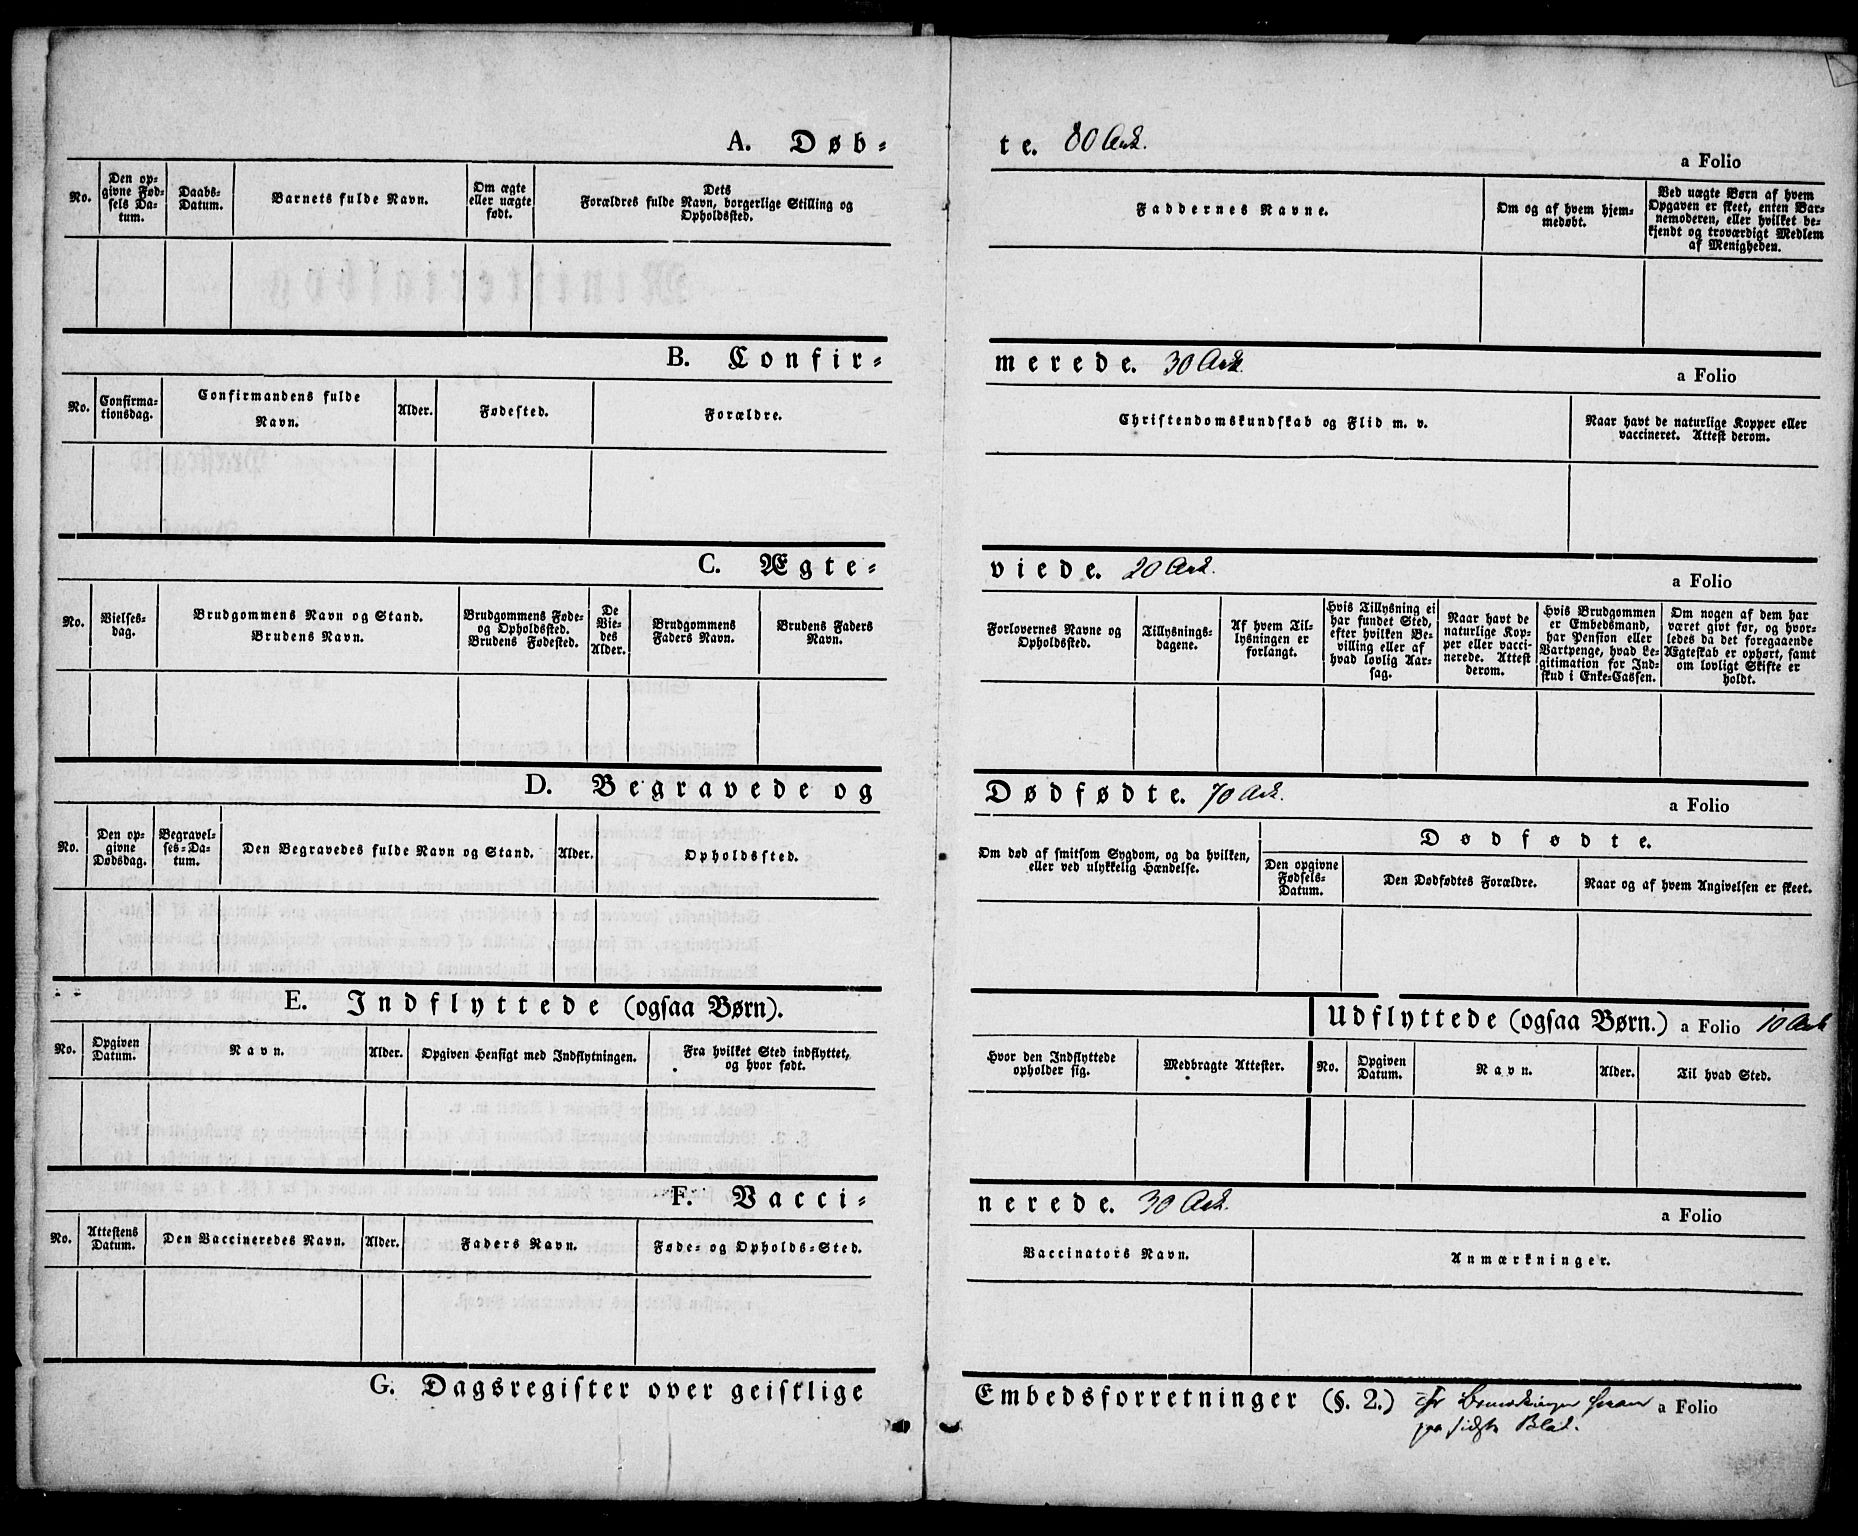 A. Døb-
te. 80 Ark.
a Folio
No.
Den op-
givne Fød-
sels Da-
tum.
Daabs-
Datum.
Barnets fulde Navn.
Om ægte
eller uægte
født.
Dets
Forældres fulde Navn, borgerlige Stilling og
Opholdssted.
Faddernes Navne.
Om og af hvem hjem-
medøbt.
Ved uægte Børn af hvem
Opgaven er skeet, enten Bar-
nemoderen, eller hvilket be-
kjendt og troværdigt Medlem
af Menigheden.
B. Confir-
merede. 30 Ark
a Folio
No.
Confirma-
tionsdag.
Confirmandens fulde
Navn.
Alder.
Fødested.
Forældre.
Christendomskundskab og Flid m. v.
Naar havt de naturlige Kopper eller
vaccineret. Attest derom.
C. Ægte-
viede. 20 Ark.
a Folio
No.
Vielses-
dag.
Brudgommens Navn og Stand.
Brudens Navn.
Brudgommens Føde-
og Opholdssted.
Brudens Fødested.
De
Vie-
des
Alder.
Brudgommens
Faders Navn.
Brudens Faders
Navn.
Forlovernes Navne og
Opholdssted.
Tillysnings-
dagene.
Af hvem Til-
lysningen er
forlangt.
Hvis Tillysning ei
har fundet Sted,
efter hvilken Be-
villing eller af
hvad lovlig Aar-
sag.
Naar havt de
naturlige Kop-
per eller vacci-
nerede. Attest
derom.
Hvis Brudgommen
er Embedsmand,
har Pension eller
Vartpenge, hvad Le-
gitimation for Ind-
skud i Enke-Cassen.
Om nogen af dem har
været givt før, og hvor-
ledes da det foregaaende
Ægteskab er ophørt, samt
om lovligt Skifte er
holdt.
D. Begravede og
Dødfødte. 70 Ark.
a Folio
No.
Den op-
givne
Dødsdag.
Begravel-
ses-Da-
tum.
Den Begravedes fulde Navn og Stand.
Alder.
Opholdssted.
Om død af smitsom Sygdom, og da hvilken,
eller ved ulykkelig Hændelse.
Dødfødte.
Den opgivne
Fødsels-
Datum.
Den Dødfødtes Forældre.
Naar og af hvem Angivelsen er skeet.
E. Indflyttede (ogsaa Børn).
Udflyttede (ogsaa Børn.) a Folio 10 Ark
No.
Opgiven
Datum.
Navn.
Alder.
Opgiven Hensigt med Indflytningen.
Fra hvilket Sted indflyttet,
og hvor født.
Hvor den Indflyttede
opholder sig.
Medbragte Attester.
No.
Opgiven
Datum.
Navn.
Alder.
Til hvad Sted.
F. Vacci-
nerede. 30 Ark.
a Folio
No.
Attestens
Datum.
Den Vaccineredes Navn.
Alder.
Faders Navn.
Føde- og Opholds-Sted.
Vaccinators Navn.
Anmærkninger.
G. Dagsregister over geistlige
Embedsforretninger (§. 2.)
a Folio
paa sidste Blad.